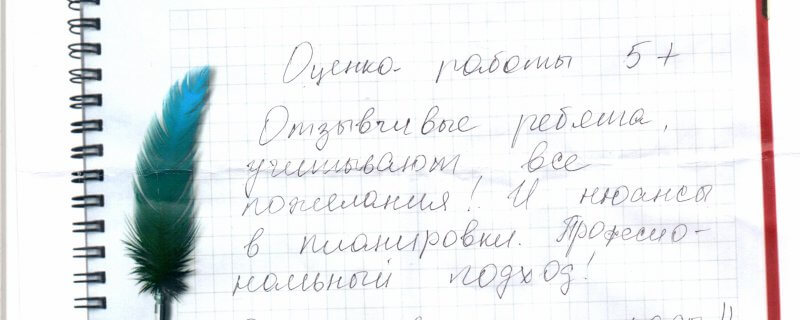 Оценка работы 5+
Отзывчивые ребята,
учитывают все
пожелания! И нюансы
в планировки. Професио-
нальный подход!